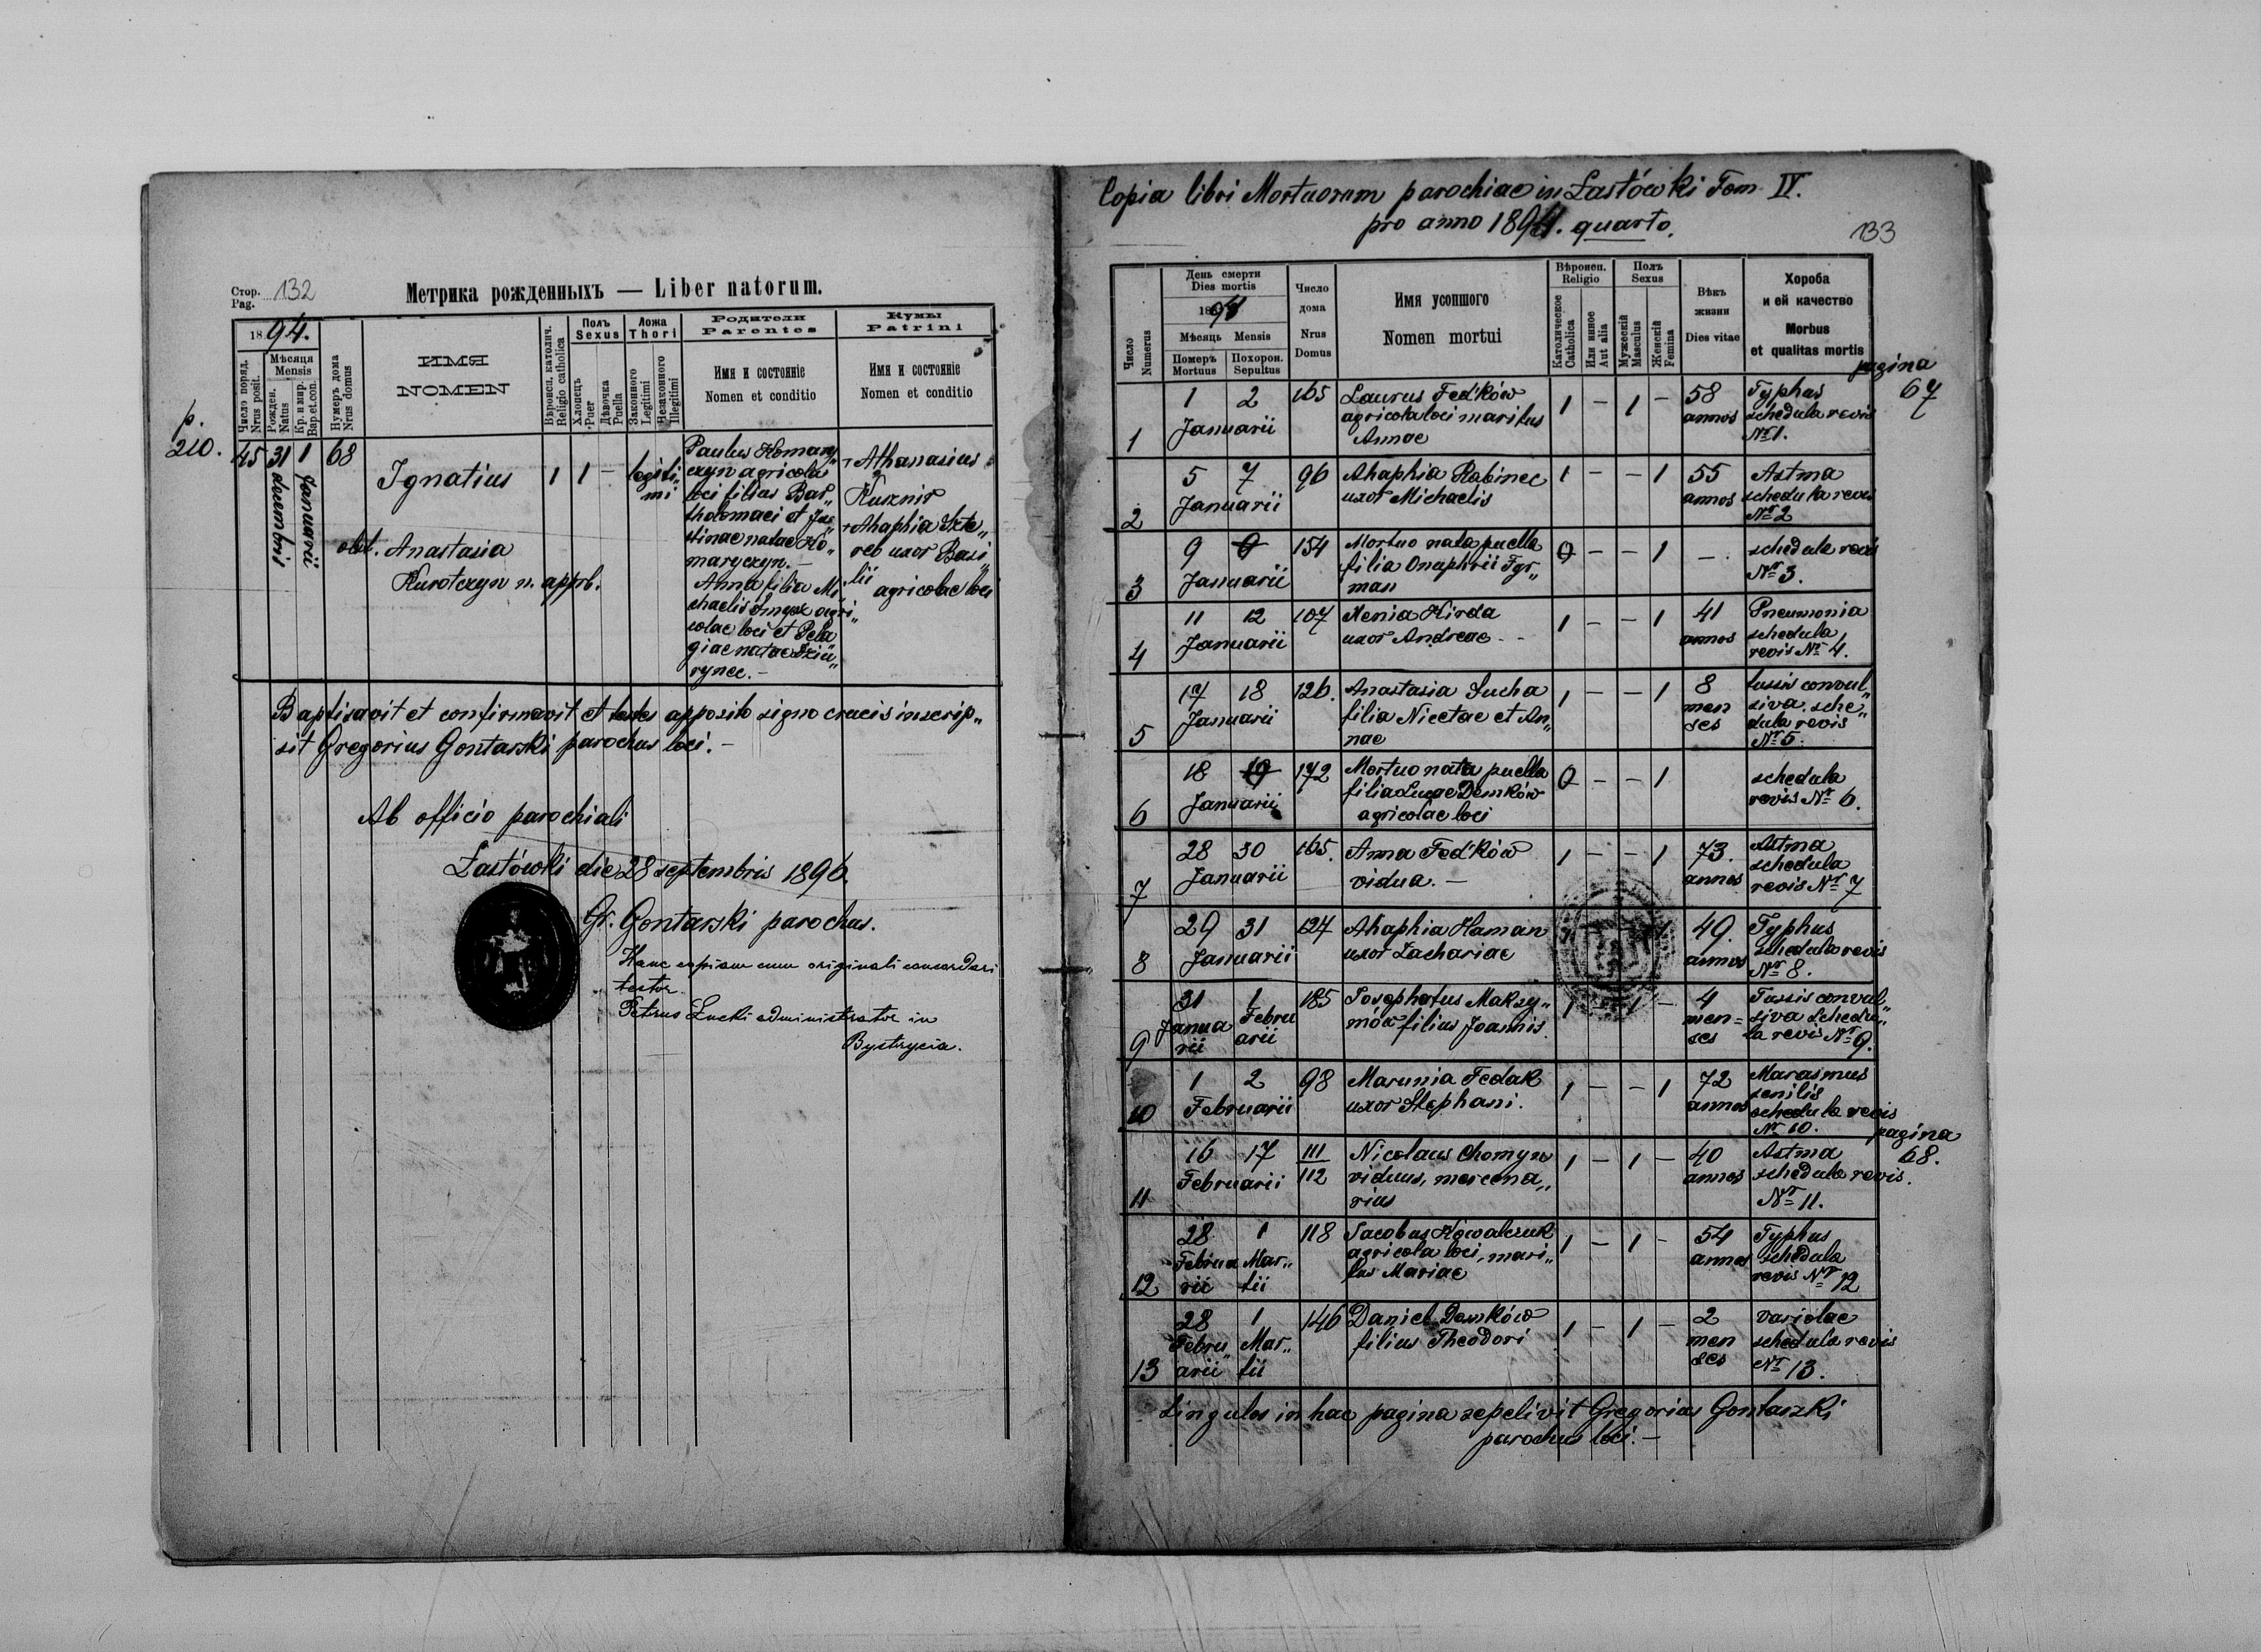 Стор. Pag. 132
Метрика рожденныхъ — Liber natorum.
1894.
Число поряд. Nrus posit.
Мѣсяця Mensis
Рожден. Natus
Кр. и мир. Bap. et. con.
Нумеръ дома Nrus domus
ИМЯ
NOMEN
Вѣроисп. католич. Religio catholica
Полъ Sexus
Хлопецъ Puer
Дѣвочка Puella
Ложа Thori
Законного Legitimi
Незаконного Illegitimi
Родители
Parentes
Имя и состояніе
Nomen et conditio
Кумы
Patrini
Имя и состояніе
Nomen et conditio
p. 210.
45 31 decembris 1 januarii 68
Ignatius
1 1 — legiti„
mi
obst. Anastasia
Kurotczyn n. approb.
Paulus Komary„
czyn agricola
loci filius Bar„
tholomaei et Ju„
stinae natae Ko„
maryczyn. —
Anna filia Mi„
chaelis agri„
colae loci et Pela„
giae natae Dziu„
rynec. —
+ Athanasius
Kusznir
+ Ahaphia
uxor Basi„
lii
agricolae loci
Baptisavit et confirmavit et testes apposito signo crucis inscrip„
sit Gregorius Gontarski parochus loci. —
Ab officio parochiali
Łastówki die 28 septembris 1896.
Gr. Gontarski parochus.
Hanc copiam cum originali concordari
testor
Petrus Łucki administrator in
Bystrycia.
Copia libri Mortuorum parochiae in Łastówki Tom IV.
pro anno 1894. quarto.
133
Число Numerus
День смерти
Dies mortis
1894
Мѣсяць Mensis
Померъ Mortuus
Похорон. Sepultus
Число дома
Nrus Domus
Имя усопшого
Nomen mortui
Вѣроисп. Religio
Католическое Catholica
Или инное Aut alia
Полъ Sexus
Мужескій Masculus
Женскій Femina
Вѣкъ жизни
Dies vitae
Хороба
и ей качество
Morbus
et qualitas mortis
pagina
67
1 1 2 Januarii 165
Laurus Fedków
agricola loci maritus
Annae
1 — 1 — 58 annos
Typhus
schedula revis
Nr 1.
2 5 7 Januarii 96
Ahaphia Rabinec
uxor Michaelis
1 — — 1 55 annos
Astma
schedula revis
Nr 2
3 9 0 Januarii 154
Mortuo nata puella
filia Onuphrii Fgr„
man
0 — — 1 —.
schedula revis
Nr 3.
4 11 12 Januarii 107
Xenia Kirda
uxor Andreae. -
1 — — 1 41 annos
Pneumonia
schedula
revis Nr 4.
5 17 18 Januarii 126.
Anastasia Sucha
filia Nicetae et An„
nae
1 — — 1 8 men ses
tussis convul„
siva. sche„
dula revis
Nr 5.
6 18 Januarii 172
Mortuo nata puella
filia Lucae Demków
agricolae loci
0 — — 1
schedula
revis Nr 6.
7 28 30 Januarii 165.
Anna Fedków
vidua. —
1 — — 1 73. annos
Astma
schedula
revis Nr 7
8 29 31 Januarii 127
Ahaphia Haman
uxor Zachariae
1 49. annos
Typhus
schedula revis
Nr 8.
9 31 Janua rii 1 Febru arii 185
Josephatus Maksy„
mów filius Joannis.
1 — 1 — 4 men= ses
Tussis convul„
siva Schedu„
la revis Nr 9.
10 1 2 Februarii 98
Marunia Fedak
uxor Stephani.
1 — — 1 72 annos
Marasmus
senilis
schedula revis
Nr 10.
pagina
68.
11 16 17 Februarii 111/112
Nicolaus Chomyn
viduus, mercena„
rius
1 — 1 — 40 annos
Astma
schedula revis.
Nr 11.
12 28 Februa rii 1 Mar„ tii 118
Jacobus Kowalczuk
agricola loci, mari„
tus Mariae
1 — 1 — 54 annos
Typhus
schedula
revis Nr 12
13 28 Febru„ arii 1 Mar„ tii 146
Daniel Demków
filius Theodori
1 — 1 — 2 men ses
variolae
schedula revis
Nr 13.
Singulos in hac pagina sepelivit Gregorius Gontarski
parochus loci. —